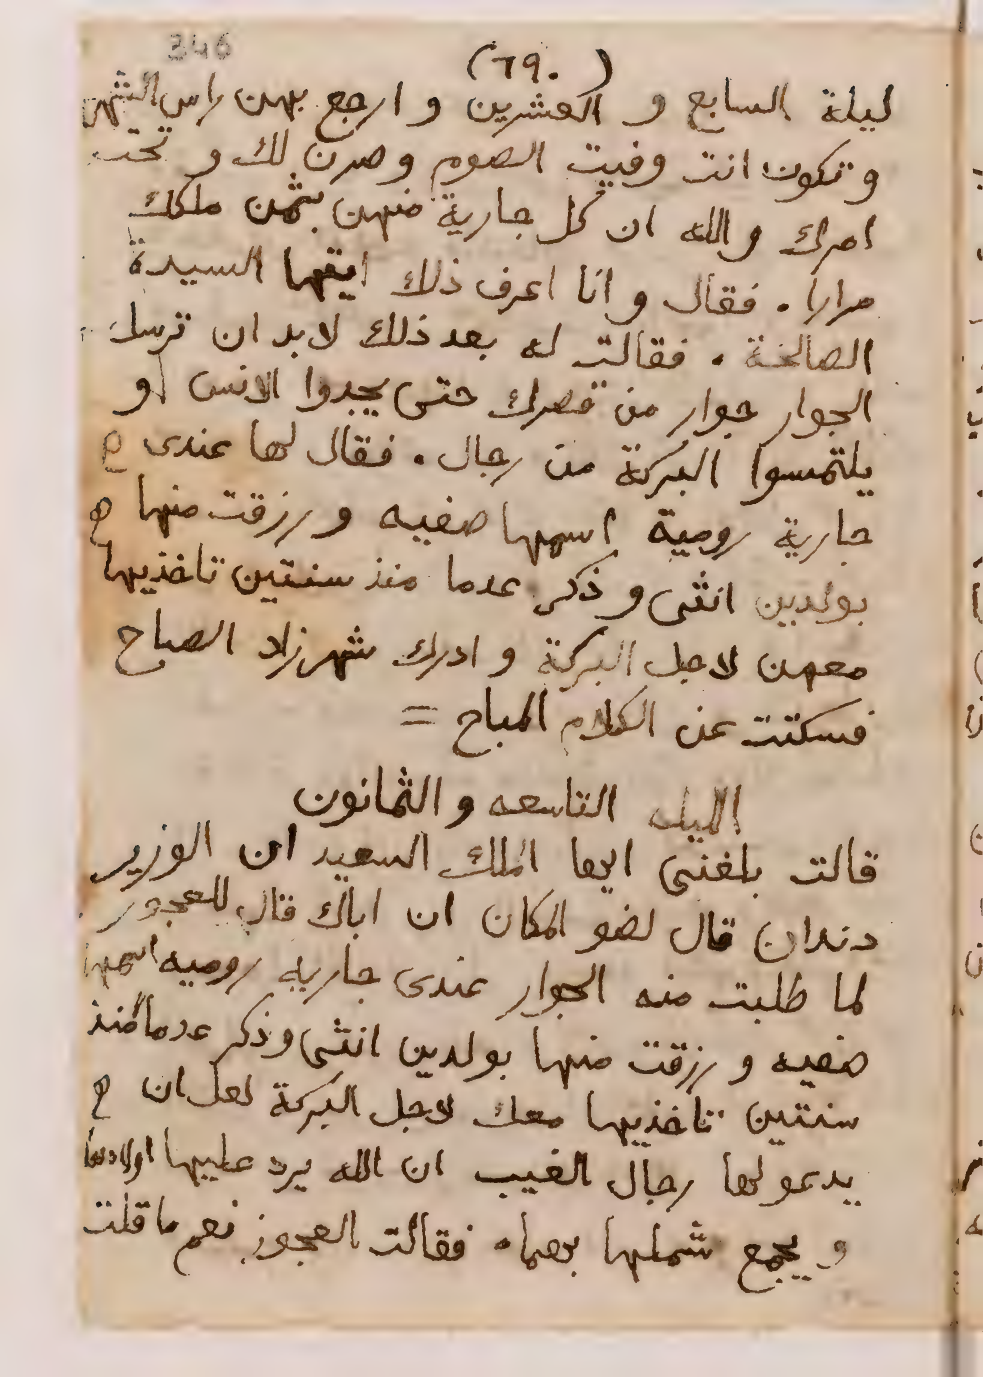 346
(٦٩٠)
ليلة السابع و العشرين و ارجع بهن راس الشهر
و تكون انت وفيت الصوم و صرن لك و تحت
امرك و الله ان كل جارية منهن بثمن ملكك
مرارا . فقال و انا اعرف ذلك ايتها السيدة
الصالحة . فقالت له بعد ذلك لابد ان ترسل
الجوار جوار من قصرك حتى يجدوا الانس او
يلتمسوا البركة من رجال . فقال لها عندى
جارية رومية اسمها صفيه و رزقت منها
بولدين انثى و ذكر عدما منذ سنتين تاخذيها
معهن لاجل البركة و ادرك شهرزاد الصباح
فسكتت عن الكلام المباح =
الليله التاسعه و الثمانون
قالت بلغنى ايها الملك السعيد ان الوزير
دندان قال لضو المكان ان اباك قال للعجوز
لما طلبت منه الجوار عندى جاريه روميه اسمها
صفيه و رزقت منها بولدين انثى و ذكر عدما منذ
سنتين تاخذيها معك لاجل البركة لعل ان
يدعو لها رجال الغيب ان الله يرد عليها اولادها
و يجمع شملها بهما . فقالت العجوز نعم ما قلت